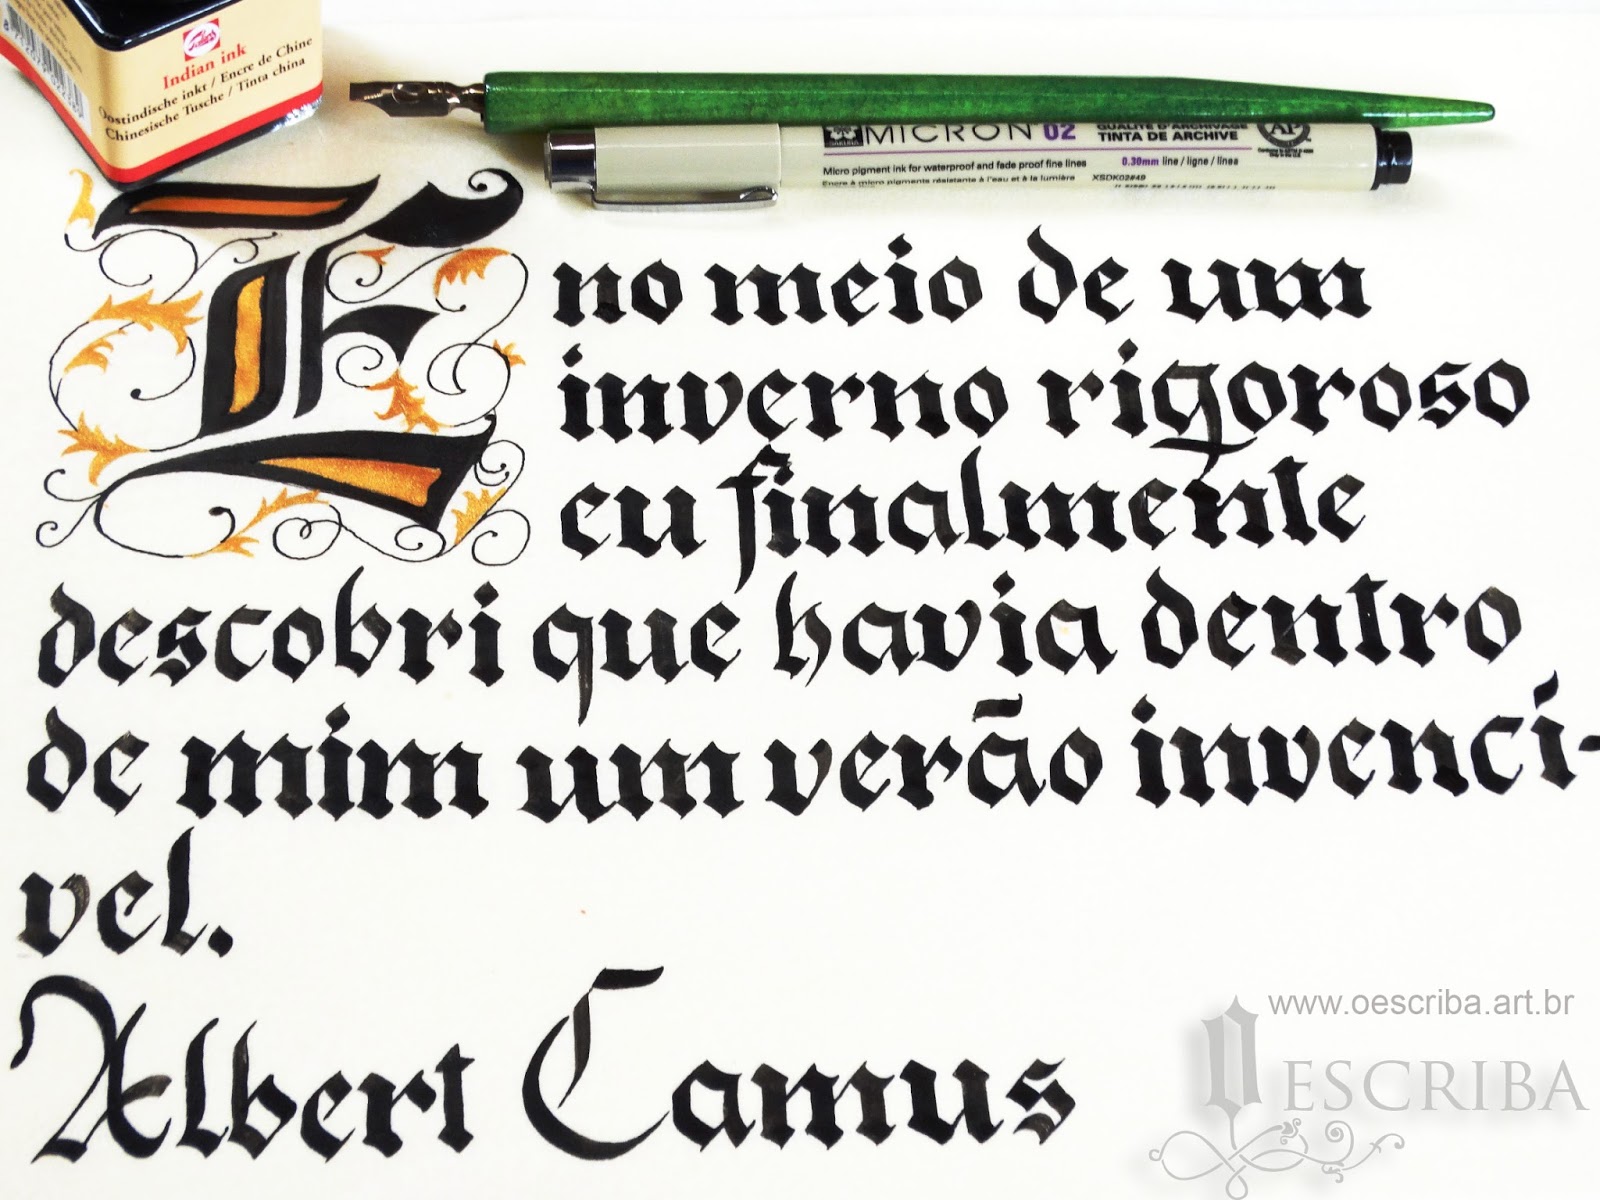 Talens
Indian ink
Oostindische inkt / Encre de Chine
Chinesische Tusche / Tinta china
MICRON 02
QUALITÉ D'ARCHIVAGE
TINTA DE ARCHIVE
AP
SAKURA
Micro pigment ink for waterproof and fade proof fine lines
0.30mm line / ligne / linea
Encre à micro pigments résistante à l'eau et à la lumière
XSDK02#49
E no meio de um
inverno rigoroso
eu finalmente
descobri que havia dentro
de mim um verão invencí-
vel.
Albert Camus
www.oescriba.art.br
O ESCRIBA